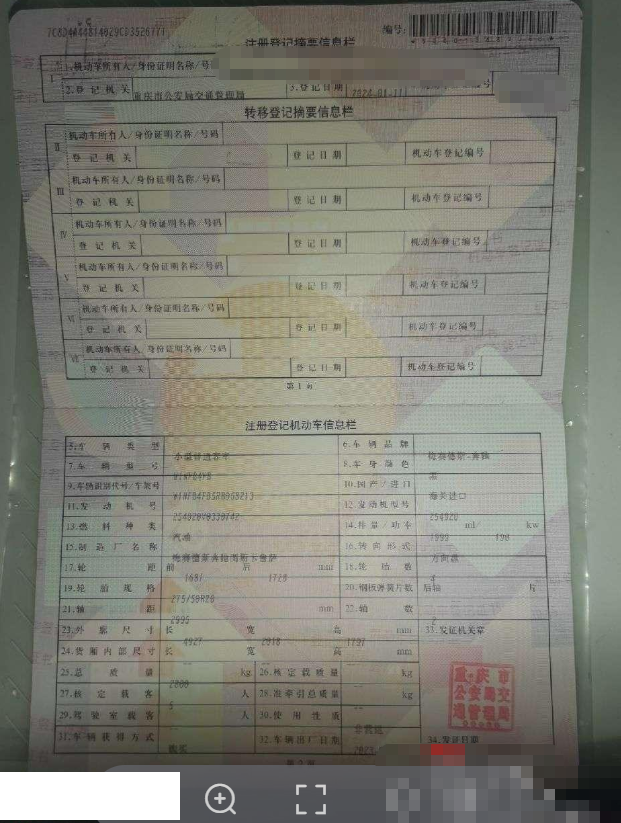 注册登记摘要信息栏 编号:
1.机动车所有人/身份证明名称/号
2.登记机关 重庆市公安局交通管理局 3.登记日期 2024-01-11
转移登记摘要信息栏
II 机动车所有人/身份证明名称/号码
登记机关 登记日期 机动车登记编号
III 机动车所有人/身份证明名称/号码
登记机关 登记日期 机动车登记编号
IV 机动车所有人/身份证明名称/号码
登记机关 登记日期 机动车登记编号
V 机动车所有人/身份证明名称/号码
登记机关 登记日期 机动车登记编号
VI 机动车所有人/身份证明名称/号码
登记机关 登记日期 机动车登记编号
VII 机动车所有人/身份证明名称/号码
登记机关 登记日期 机动车登记编号
第1页
注册登记机动车信息栏
5.车辆类型 小型普通客车 6.车辆品牌 梅赛德斯-奔驰
7.车辆型号 8.车身颜色 黑
9.车辆识别代号/车架号 10.国产/进口 海关进口
11.发动机号 12.发动机型号 254920
13.燃料种类 汽油 14.排量/功率 1999 ml/ 190 kw
15.制造厂名称 16.转向形式 方向盘
17.轮距 前 1681 后 1728 mm 18.轮胎数 4
19.轮胎规格 275/50R20 20.钢板弹簧片数 后轴 片
21.轴距 2995 mm 22.轴数 2
23.外廓尺寸 长 4927 宽 2018 高 1797 mm 33.发证机关章
24.货厢内部尺寸 长 宽 高 mm
25.总质量 kg 26.核定载质量 kg
27.核定载客 5 人 28.准牵引总质量 kg
29.驾驶室载客 人 30.使用性质 非营运
31.车辆获得方式 购买 32.车辆出厂日期 34.发证日期
重庆市
公安局交
通管理局